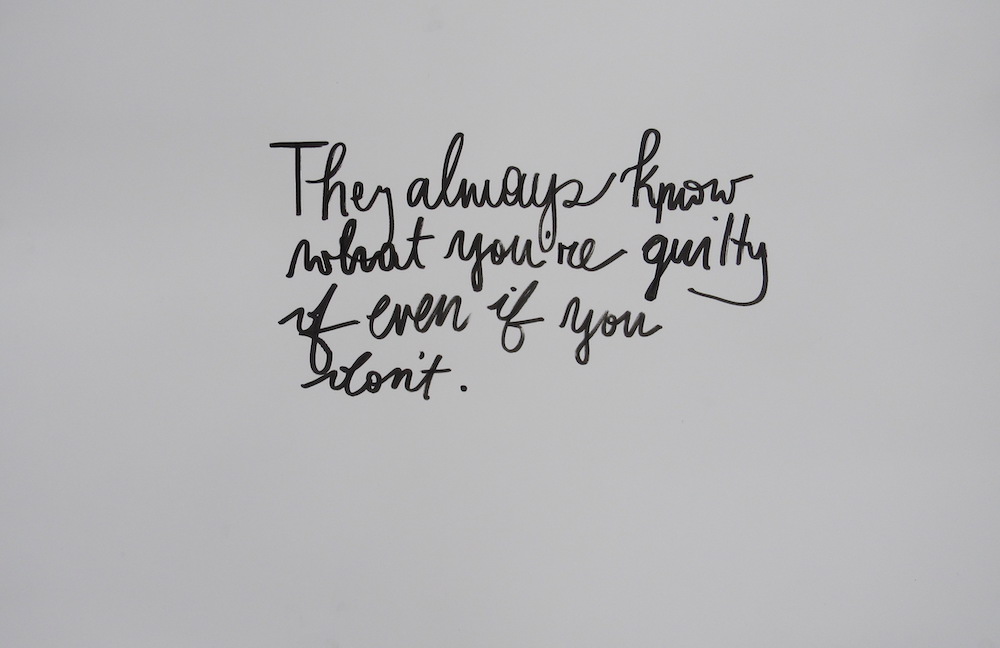 They always know
what you're guilty
of even if you
don't.